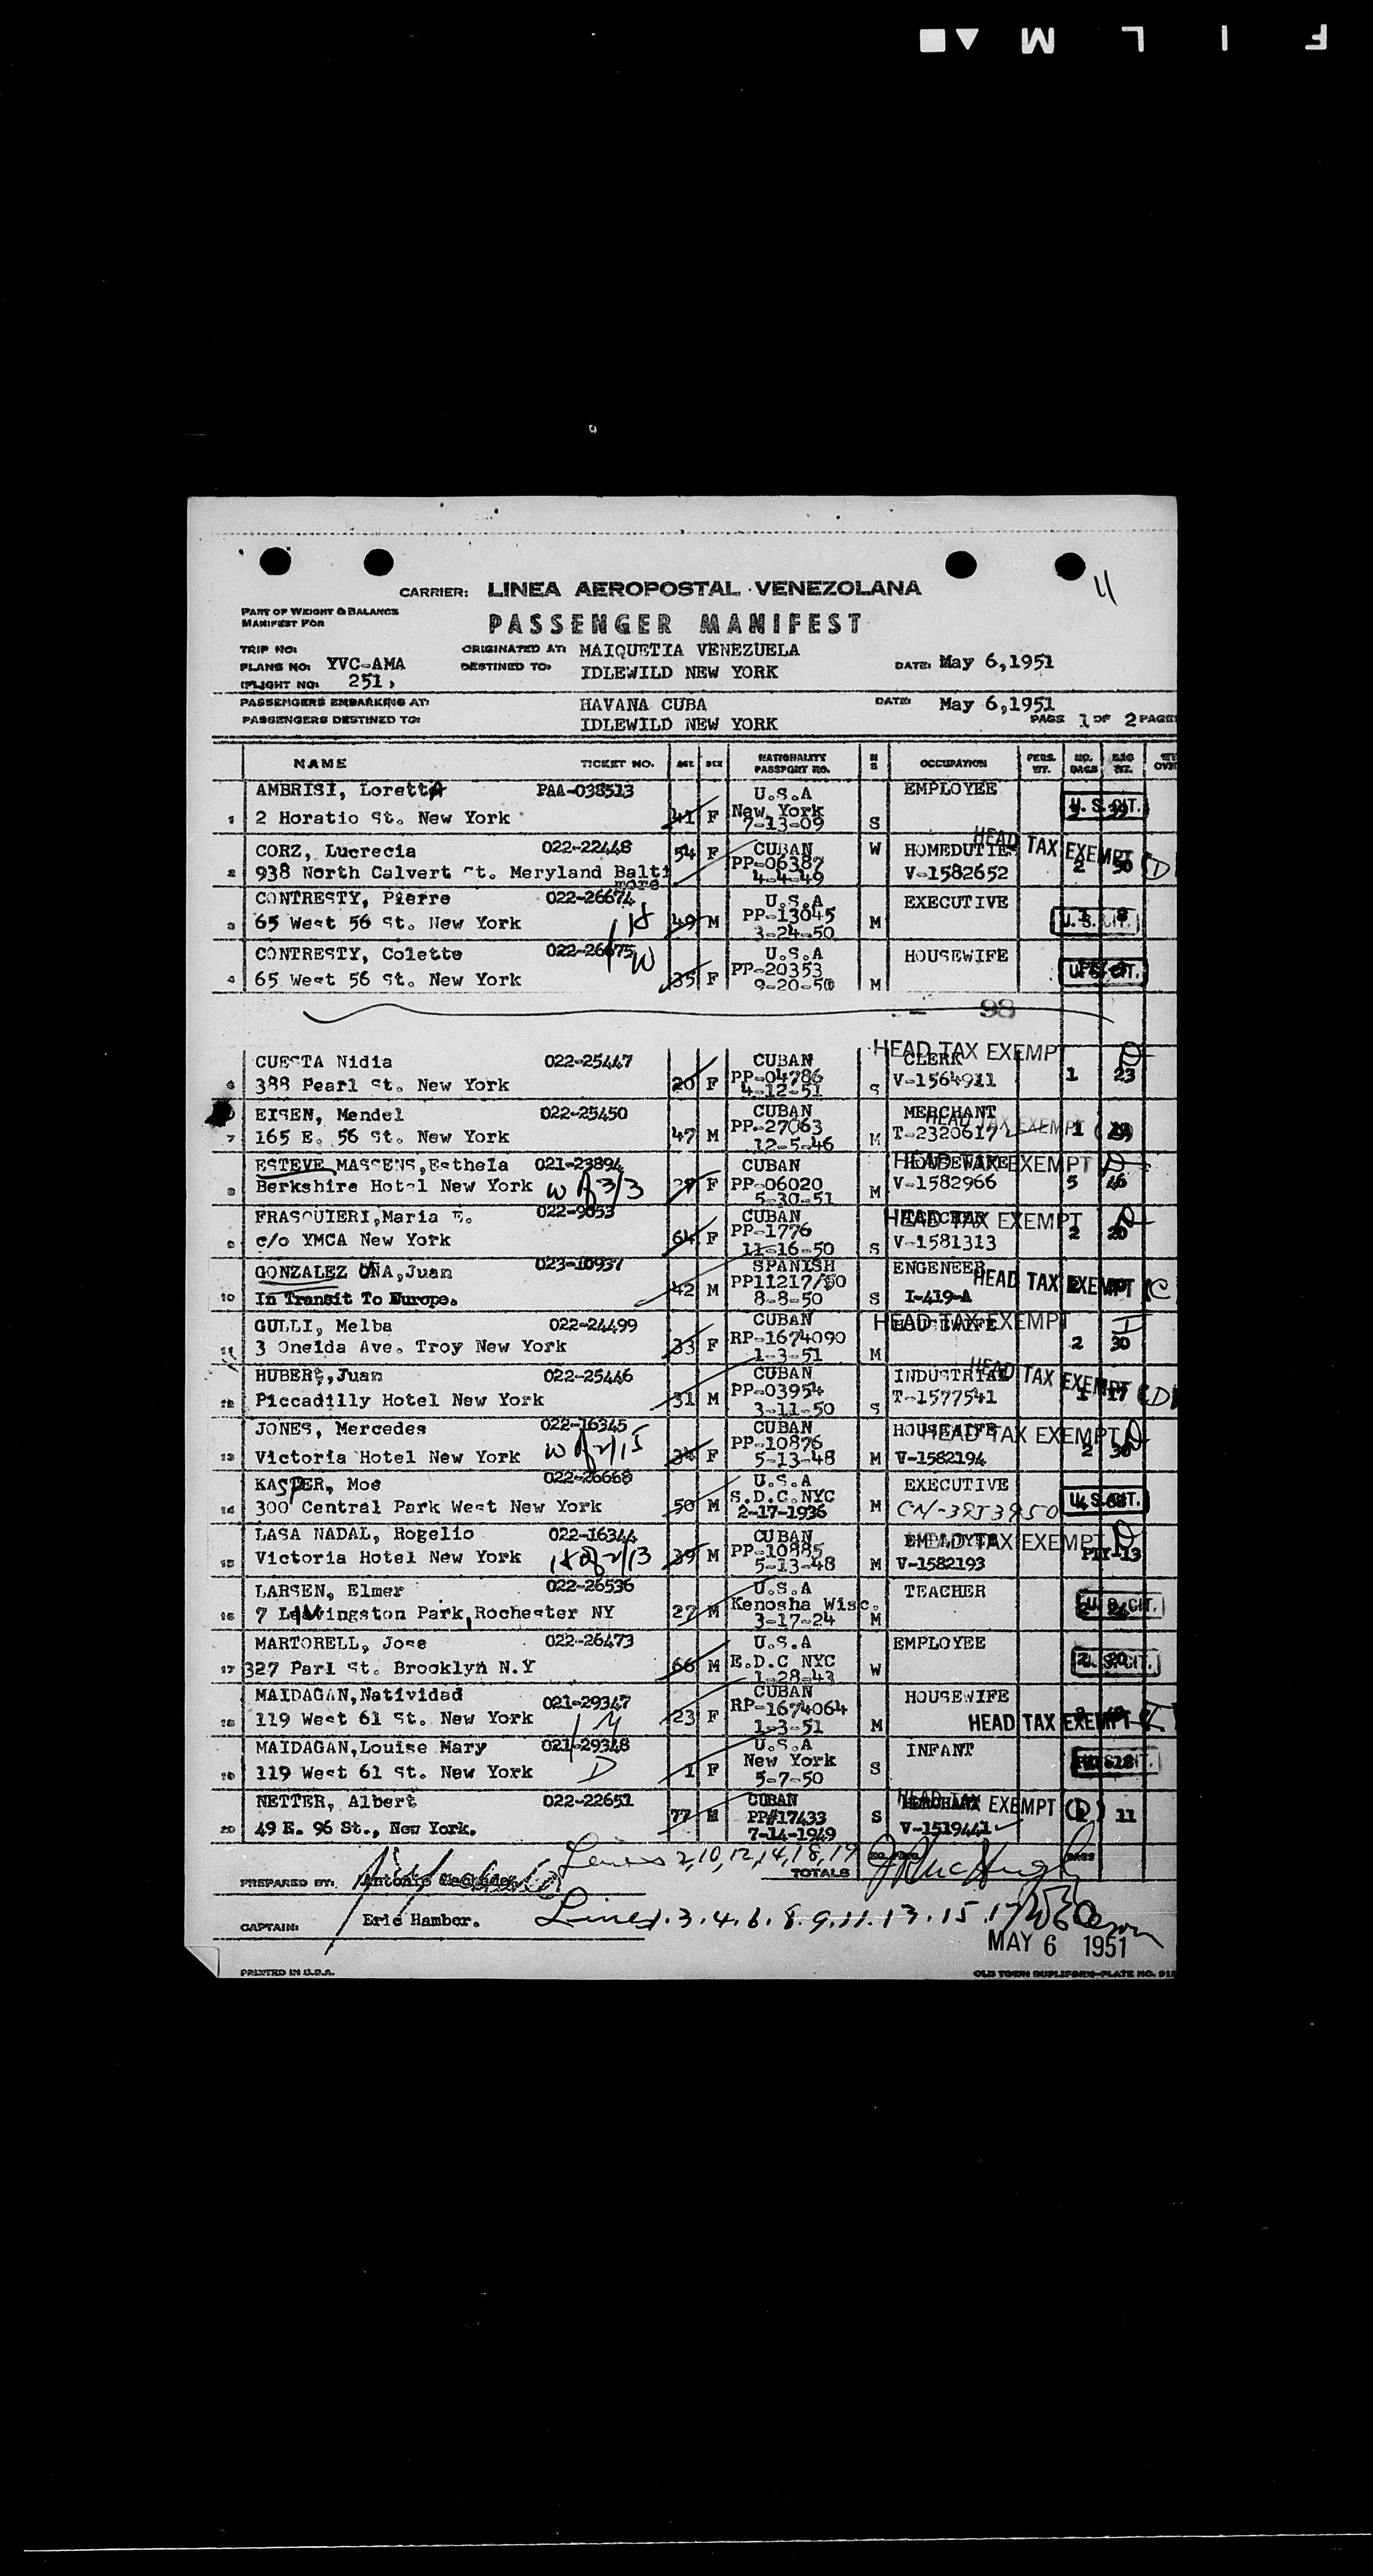 F I L M
11
CARRIER: LINEA AEROPOSTAL VENEZOLANA
PART OF WEIGHT & BALANCE
MANIFEST FOR
PASSENGER MANIFEST
TRIP NO: ORIGINATED AT: MAIQUETIA VENEZUELA
PLANE NO: YVC-AMA DESTINED TO: IDLEWILD NEW YORK DATE: May 6,1951
FLIGHT NO: 251,
PASSENGERS EMBARKING AT: HAVANA CUBA DATE: May 6,1951
PASSENGERS DESTINED TO: IDLEWILD NEW YORK PAGE 1 OF 2 PAGE
NAME TICKET NO. AGE SEX NATIONALITY PASSPORT NO. M S OCCUPATION PERS. WT. NO. BAGS BAG WT.
AMBRISI, Loretta PAA-038513 U.S.A EMPLOYEE
1 2 Horatio St. New York 41 F New York 7-13-09 S U. S. CIT.
CORZ, Lucrecia 022-22448 54 F CUBAN W HOMEDUTIES HEAD TAX EXEMPT
2 938 North Calvert St. Meryland Balti more PP-06387 4-4-49 V-1582652 2 50 (D
CONTRESTY, Pierre 022-26674 U.S.A EXECUTIVE
3 65 West 56 St. New York 49 M PP-13045 3-24-50 M U. S. CIT.
CONTRESTY, Colette 022-26675 W U.S.A HOUSEWIFE
4 65 West 56 St. New York 35 F PP-20353 9-20-50 M U. S. CIT.
98
CUESTA Nidia 022-25447 CUBAN CLERK HEAD TAX EXEMPT D
6 388 Pearl St. New York 20 F PP-04786 4-12-51 S V-1564911 1 23
EISEN, Mendel 022-25450 CUBAN MERCHANT HEAD TAX EXEMPT
7 165 E. 56 St. New York 47 M PP-27063 12-5-46 M T-2320617 1
ESTEVE MASSENS,Esthela 021-23894 CUBAN HOUSEWIFE HEAD TAX EXEMPT D
8 Berkshire Hotel New York F PP-06020 5-30-51 M V-1582966 5 46
FRASQUIERI,Maria E. 022-9053 CUBAN HEAD TAX EXEMPT D
9 c/o YMCA New York 64 F PP-1776 11-16-50 S V-1581313 2 20
GONZALEZ OÑA,Juan 023-10937 SPANISH ENGENEER HEAD TAX EXEMPT (C
10 In Transit To Europe. 42 M PP11217/50 8-8-50 S I-419-A
GULLI, Melba 022-24499 CUBAN HEAD TAX EXEMPT I
11 3 Oneida Ave. Troy New York 33 F RP-1674090 1-3-51 M 2 30
HUBERT,Juan 022-25446 CUBAN INDUSTRIAL HEAD TAX EXEMPT (D)
12 Piccadilly Hotel New York 31 M PP-03954 3-11-50 S T-1577541 1 17
JONES, Mercedes 022-16345 CUBAN HOUSEWIFE HEAD TAX EXEMPT D
13 Victoria Hotel New York W of 2/15 34 F PP-10876 5-13-48 M V-1582194 2 30
KASPER, Moe 022-26668 U.S.A EXECUTIVE
14 300 Central Park West New York 50 M S.D.C.NYC 2-17-1936 M CN-3853950 U. S. CIT.
LASA NADAL, Rogelio 022-16344 CUBAN HEAD TAX EXEMPT D
15 Victoria Hotel New York 39 M PP-10885 5-13-48 M V-1582193 PTY-13
LARSEN, Elmer 022-26536 U.S.A TEACHER
16 7 Livingston Park,Rochester NY 27 M Kenosha Wisc. 3-17-24 M U. S. CIT.
MARTORELL, Jose 022-26473 U.S.A EMPLOYEE
17 327 Parl St. Brooklyn N.Y 66 M E.D.C NYC 1-28-43 W U. S. CIT.
MAIDAGAN,Natividad 021-29347 CUBAN HOUSEWIFE
18 119 West 61 St. New York 23 F RP-1674064 1-3-51 M HEAD TAX EXEMPT I
MAIDAGAN,Louise Mary 021-29348 U.S.A INFANT
19 119 West 61 St. New York D 1 F New York 5-7-50 S
NETTER, Albert 022-22651 CUBAN HEAD TAX EXEMPT (D)
20 49 E. 96 St., New York. 77 M PP#17433 7-14-1949 S V-1519441 11
Lines 2,10,12,14,18,19 TOTALS
PREPARED BY: Antonio
CAPTAIN: Eric Hamber. Lines 1.3.4.6.8.9.11.13.15.17
MAY 6 1951
PRINTED IN U.S.A. OLD TOWN DUPLIFORM-PLATE NO.